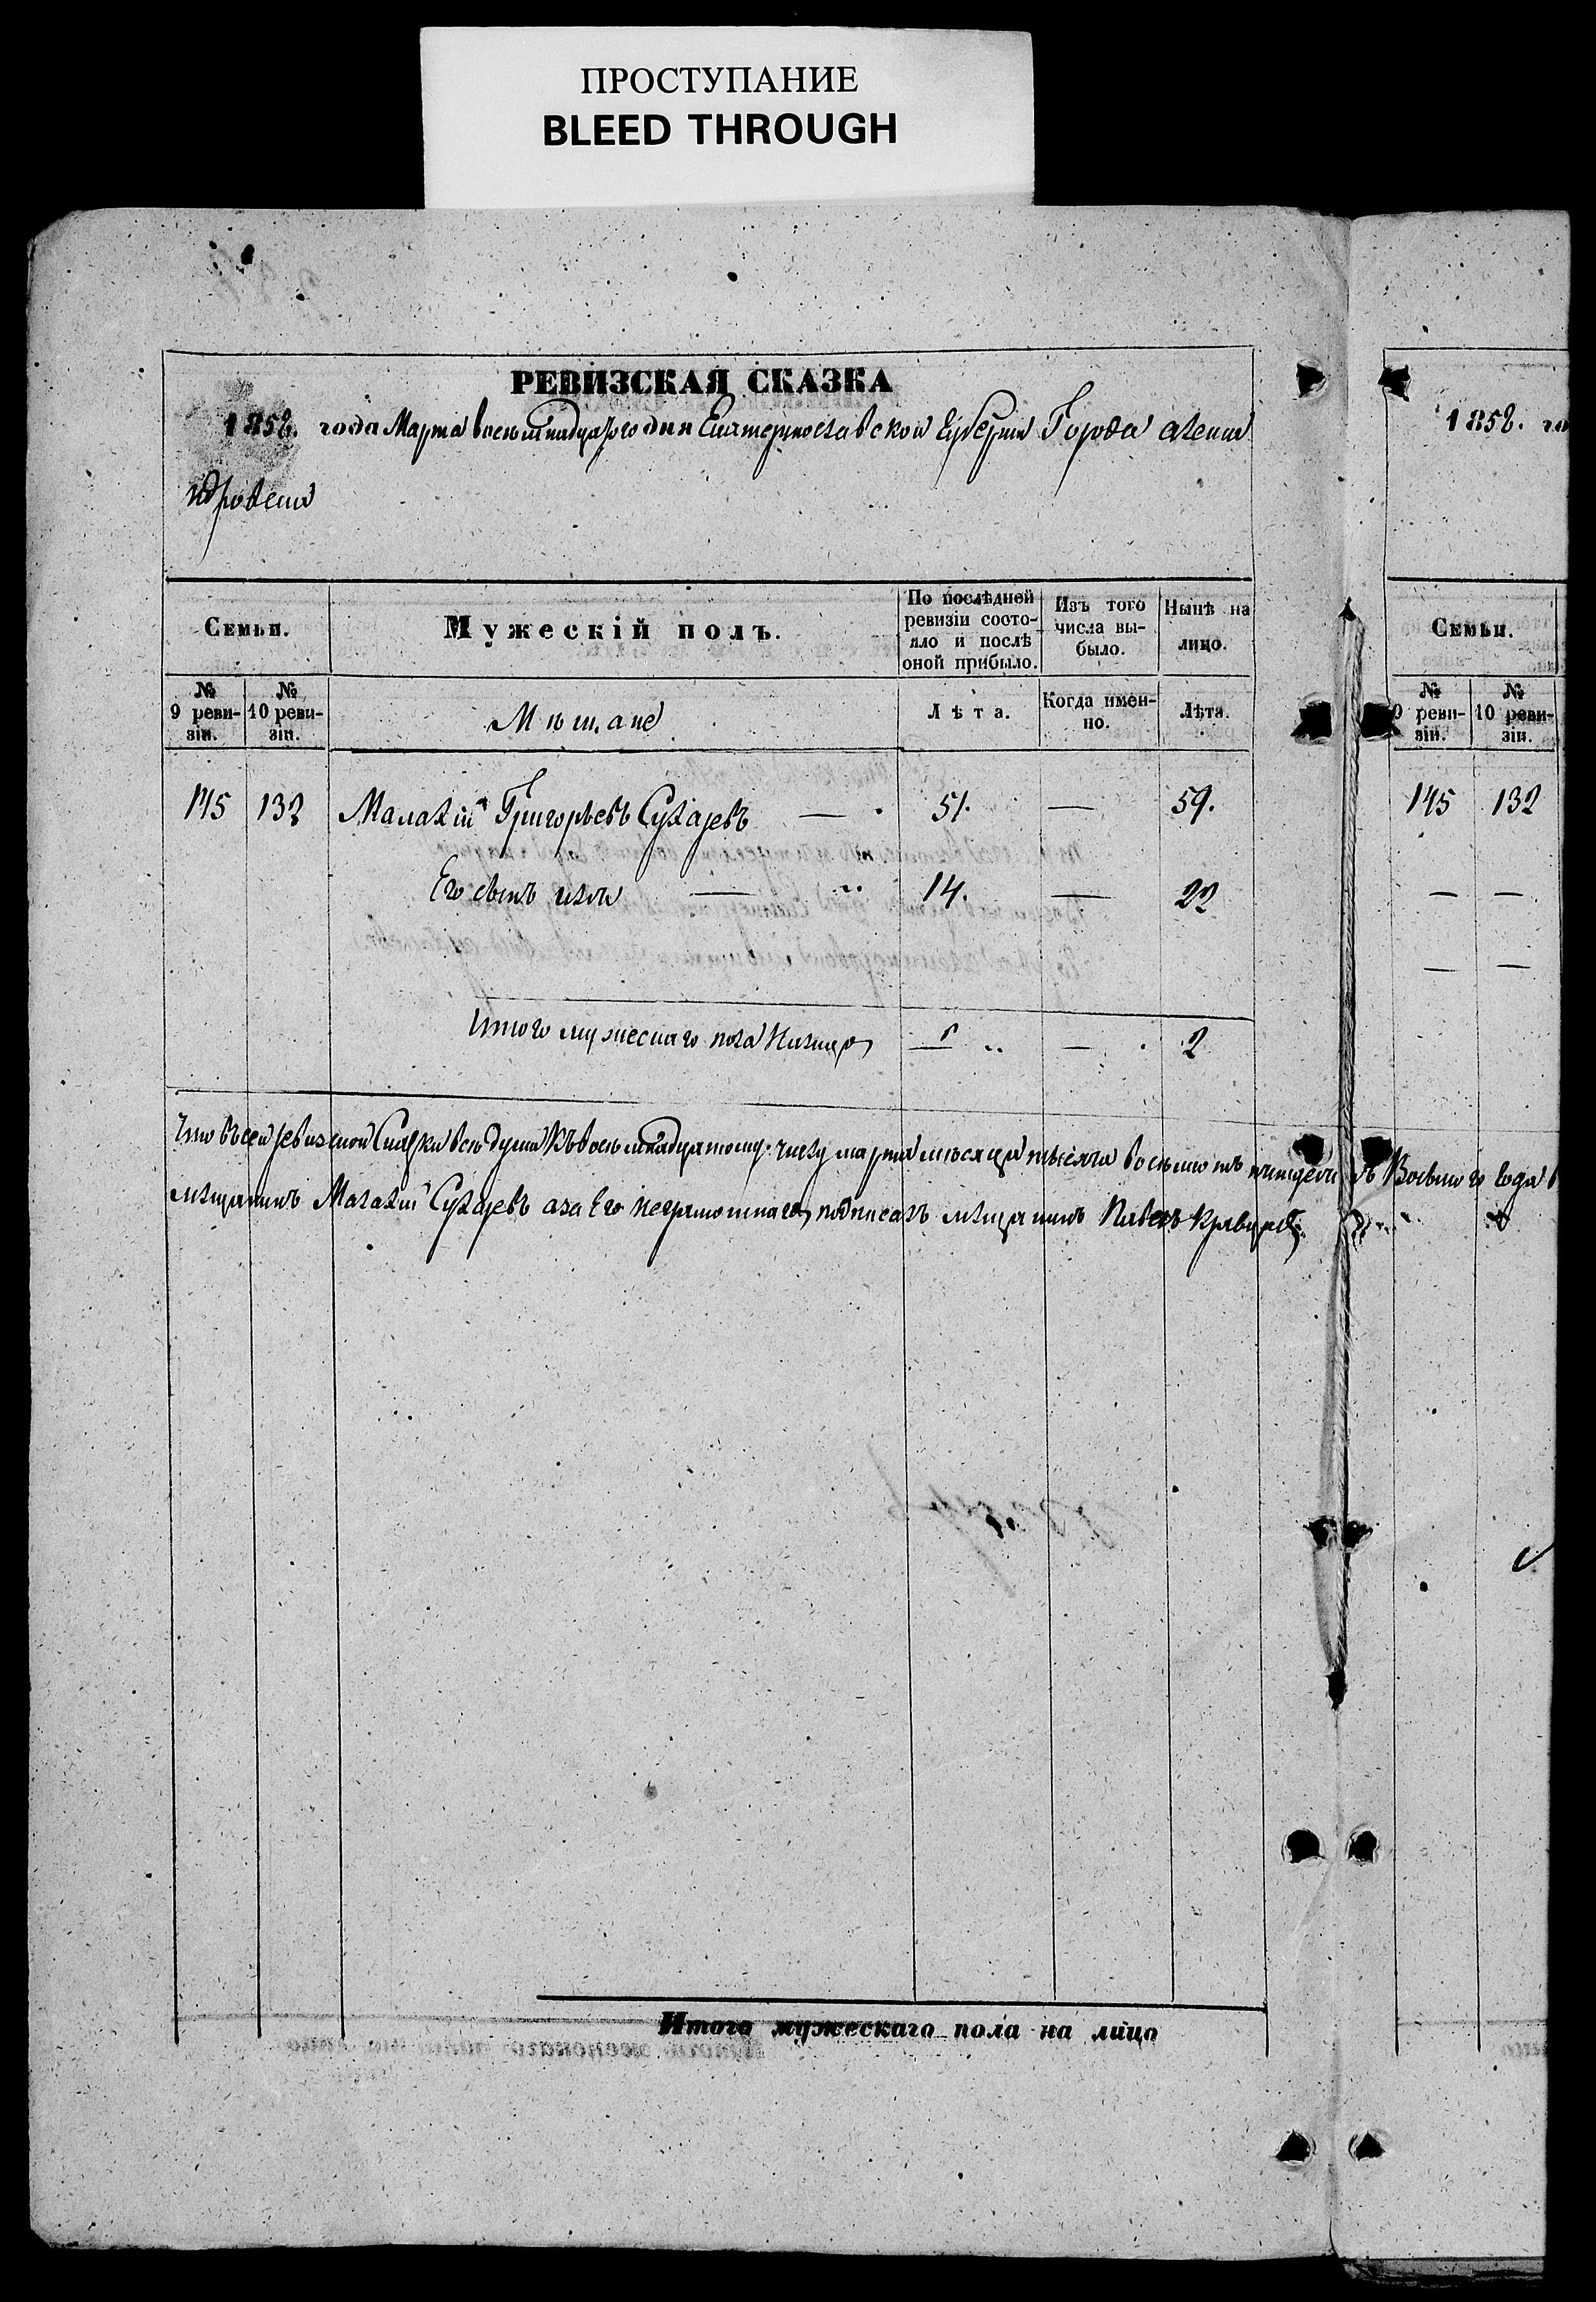 ПРОСТУПАНИЕ
BLEED THROUGH
РЕВИЗСКАЯ СКАЗКА
1858. года Марта восемнадцатого дня Екатеринославской Губернии Города Алекса
ндровска
Семьи. Мужескій полъ. По послѣдней ревизіи состояло и послѣ оной прибыло. Изъ того числа выбыло. Нынѣ на лицо.
№ 9 ревизіи. № 10 ревизіи. Мѣщане Лѣта. Когда именно. Лѣта.
145 132 Малахій Григорьевъ Сухаревъ — 51. — 59.
Его сынъ — 14. — 22
Итого мужескаго пола налицо — — 2
Что въ сей ревизской Скаски все души къ восемнадцатому числу марта мѣсяца тысяча восемьсотъ пятдесятъ Восьмого года
мѣщанинъ Малахій Сухаревъ а за Его неграмотнаго подписалъ мѣщанинъ Павелъ
Итого мужескаго пола на лицо
1858. го
Семьи.
№ 9 ревизіи. № 10 ревизіи.
145 132
— —
— —